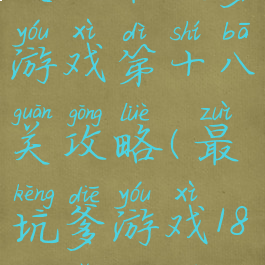 yóu xì dì shí bā
游戏第十八
guān gōng lüè zuì
关攻略(最
kēng diē yóu xì
坑爹游戏18